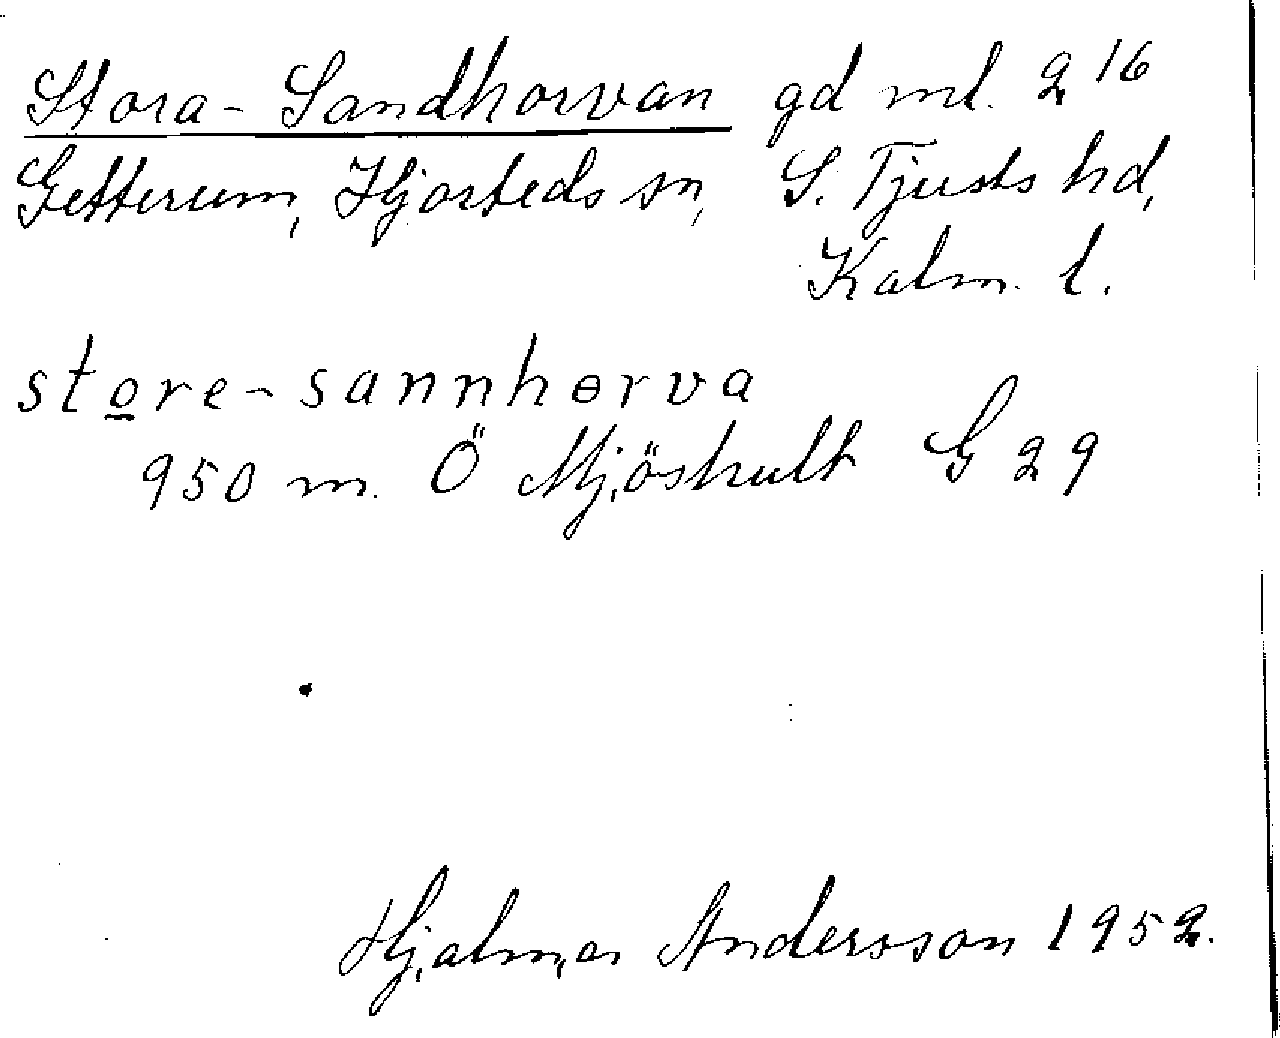 Stora-Sandhorvan gd ml. 2¹⁶
Getterum, Hjorteds sn, S. Tjusts hd,
Kalm. l.
store-sannhɵrva
950 m. Ö Mjöshult G 29
Hjalmar Andersson 1952.